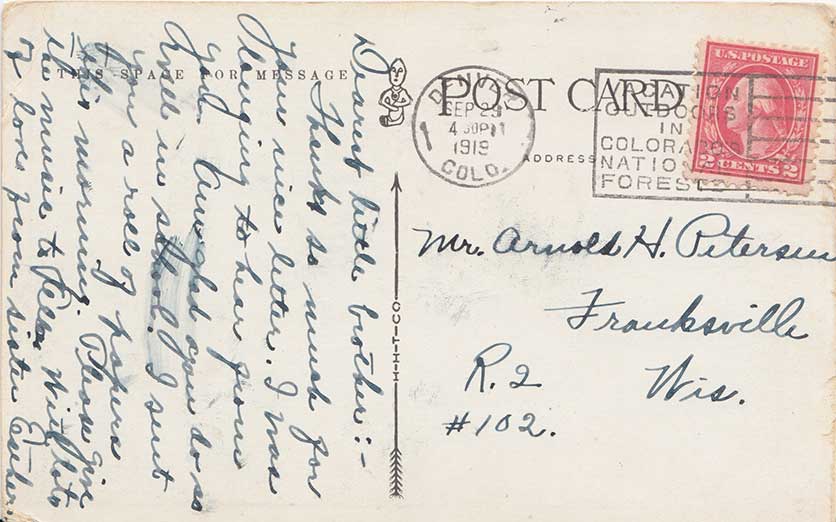 THIS SPACE FOR MESSAGE
POST CARD
ADDRESS
Dearest little brother:-
Thanks so much for
your nice letter. I was
longing to hear from
you. Am glad you do so
well in school. I sent
you a roll of papers
this morning. Please give
the music to Will. Lots
of love from sister Esther.
H-H-T-CO.
DENVER
SEP 23
4 30PM
1919
COLO.
1
VACATION
OUTDOORS
IN
COLORADO'S
NATIONAL
FOREST
U.S. POSTAGE
2 CENTS 2
Mr. Arnold H. Petersen
Franksville
R. 2
Wis.
#102.